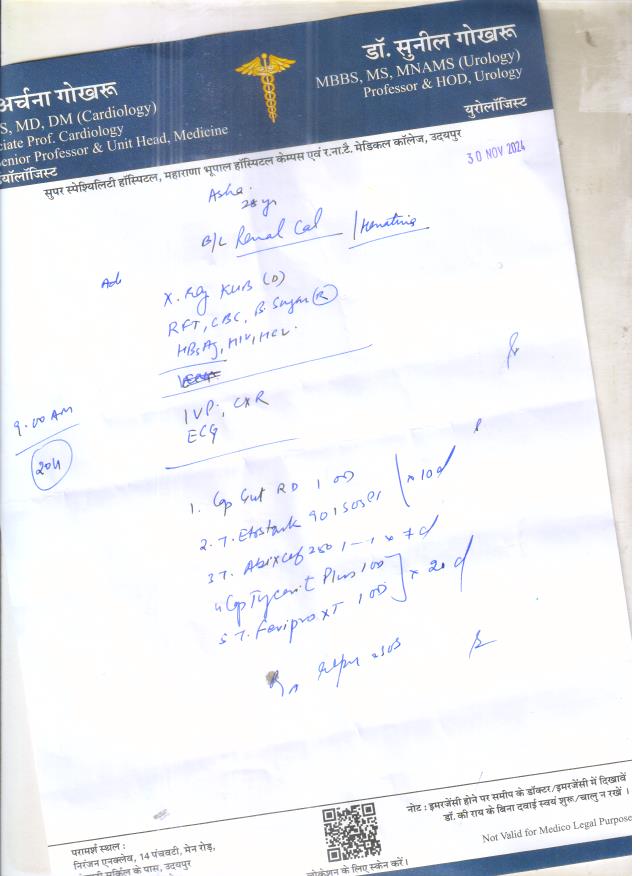 अर्चना गोखरू
S, MD, DM (Cardiology)
ciate Prof. Cardiology
enior Professor & Unit Head, Medicine
डॉ. सुनील गोखरू
MBBS, MS, MNAMS (Urology)
Professor & HOD, Urology
यूरोलॉजिस्ट
सुपर स्पेश्यिलिटी हॉस्पिटल, महाराणा भूपाल हॉस्पिटल केम्पस एवं र.ना.टै. मेडिकल कॉलेज, उदयपुर
30 NOV 2024
Asha
28 yr
B/L Renal Cal / Hematuria
Adv
X. Ray KUB (D)
RFT, CBC, B. Sugar (R)
HBsAg, HIV, HCV.
IVP, CXR
ECG
9.00 AM
204
1. Cap Gut RD 1 OD
2. T. Etostark 90 1 SOS x 10 d
3 T. Abixcef 250 1-1 x 7 d
4 Cap Plus 1 OD
5 T. Feripro XT 1 OD x 20 d
नोट : इमरजेंसी होने पर समीप के डॉक्टर/इमरजेंसी में दिखावें
डॉ. की राय के बिना दवाई स्वयं शुरू/चालु न रखें ।
Not Valid for Medico Legal Purpose
परामर्श स्थल :
निरंजन एनक्लेव, 14 पंचवटी, मेन रोड,
सर्किल के पास, उदयपुर
लोकेशन के लिए स्केन करें।